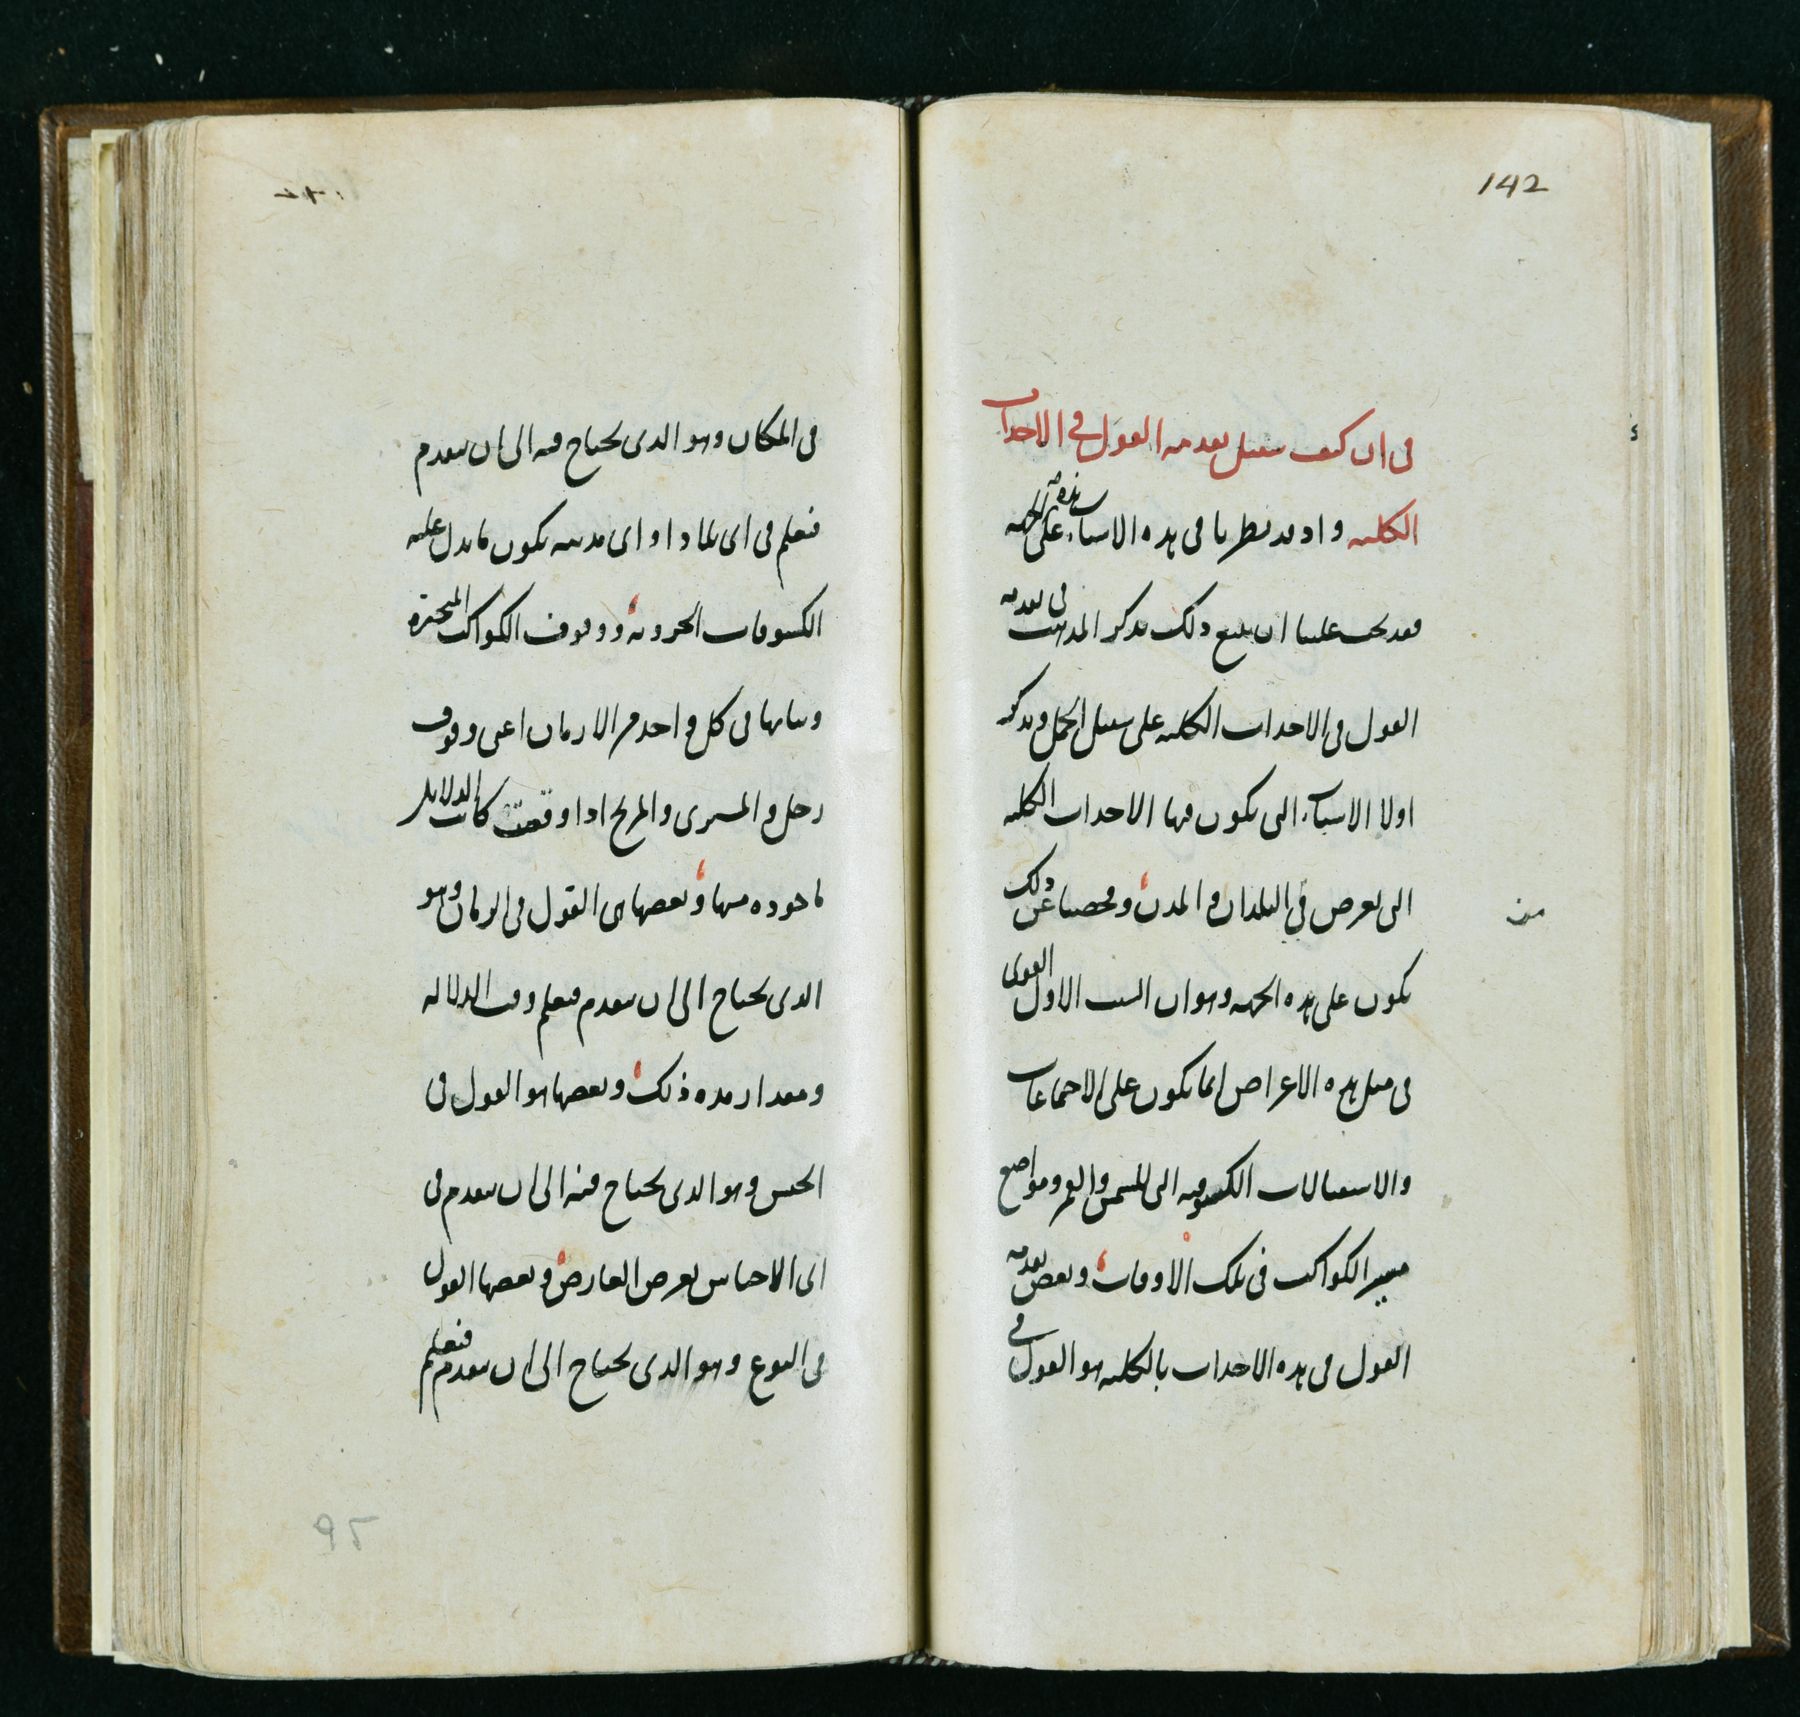 142
في ان كيف سبيل تقدمة القول في الاحداث
الكلية واذ قد نظرنا في هذه الاشياء على هذه الجهة
فقد يجب علينا ان نتبع ذلك بذكر المذهب في تقدمة
القول في الاحداث الكلية على سبيل الجمل ونذكر
اولا الاسباب التي تكون فيها الاحداث الكلية
التي تعرض في البلدان والمدن وفحصنا عن ذلك
من
يكون على هذه الجهة وهو ان السبب الاول القوي
في مثل هذه الاعراض انما يكون على الاجتماعات
والاستقبالات الكسوفية التي للشمس والقمر ومواضع
مسير الكواكب في تلك الاوقات وبعض تقدمة
القول في هذه الاحداث بالكلية هو القول في
في المكان وهو الذي يحتاج فيه الى ان يتقدم
فنعلم في اي بلاد او اي مدينة يكون ما يدل عليه
الكسوفات الجزوية ووقوف الكواكب المتحيرة
وثباتها في كل واحد من الازمان اعني وقوف
زحل والمشتري والمريخ اذا وقفت كانت الدلايل
ماخوذة منها وبعضها هي القول في الزمان وهو
الذي يحتاج الى ان يتقدم فنعلم وقت الدلالة
ومقدار مدة ذلك وبعضها هو القول في
الجنس وهو الذي يحتاج فيه الى ان يتقدم في
اي الاجناس يعرض العارض وبعضها القول
في النوع وهو الذي يحتاج الى ان يتقدم فنعلم
95